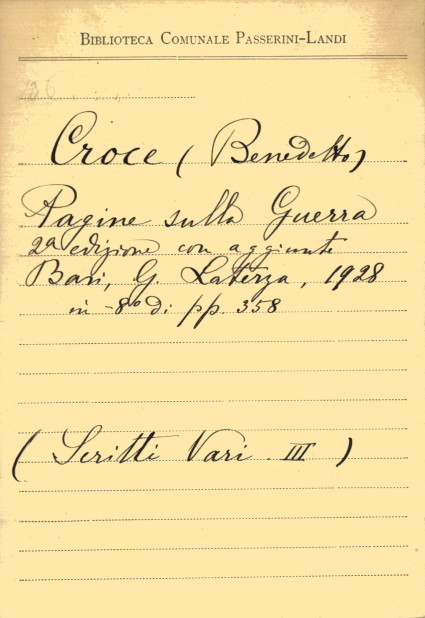 BIBLIOTECA COMUNALE PASSERINI-LANDI
Croce (Benedetto)
Pagine sulla Guerra
2ª edizione con aggiunte
Bari, G. Laterza, 1928
in-8º di pp. 358
(Scritti Vari. III)